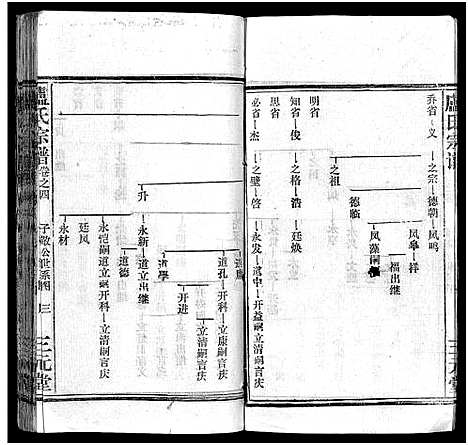 盧氏宗譜
乔省 義
之宗 德朝 凤鸣
凤 祥
福出继
凤藻嗣
德临
之祖
明省
知省 俊 之格 廷焕
思省
必省 杰 之壁 浩
啓 永发 道中 开益嗣 立清嗣言庆
道廣
道孔 开科 立康嗣言庆
开进
道學
升 永新 道立出继
道德
永恺嗣道立嗣 开科 立清嗣言庆
廷风
永材
盧氏宗譜 卷之四 子敬公世系图 三
三元堂